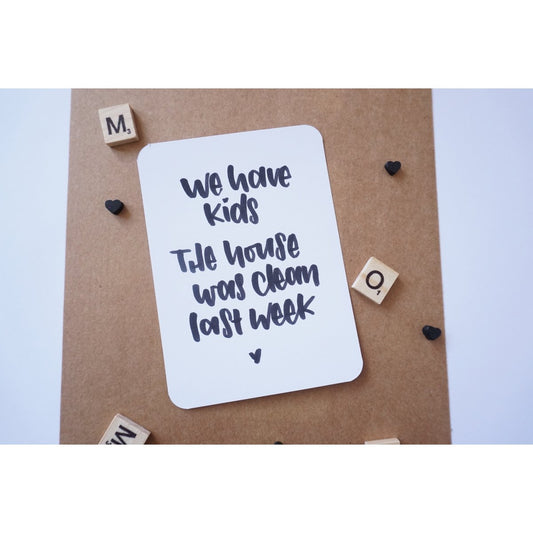 M3
we have
kids
The house
was clean
last week
O1
M